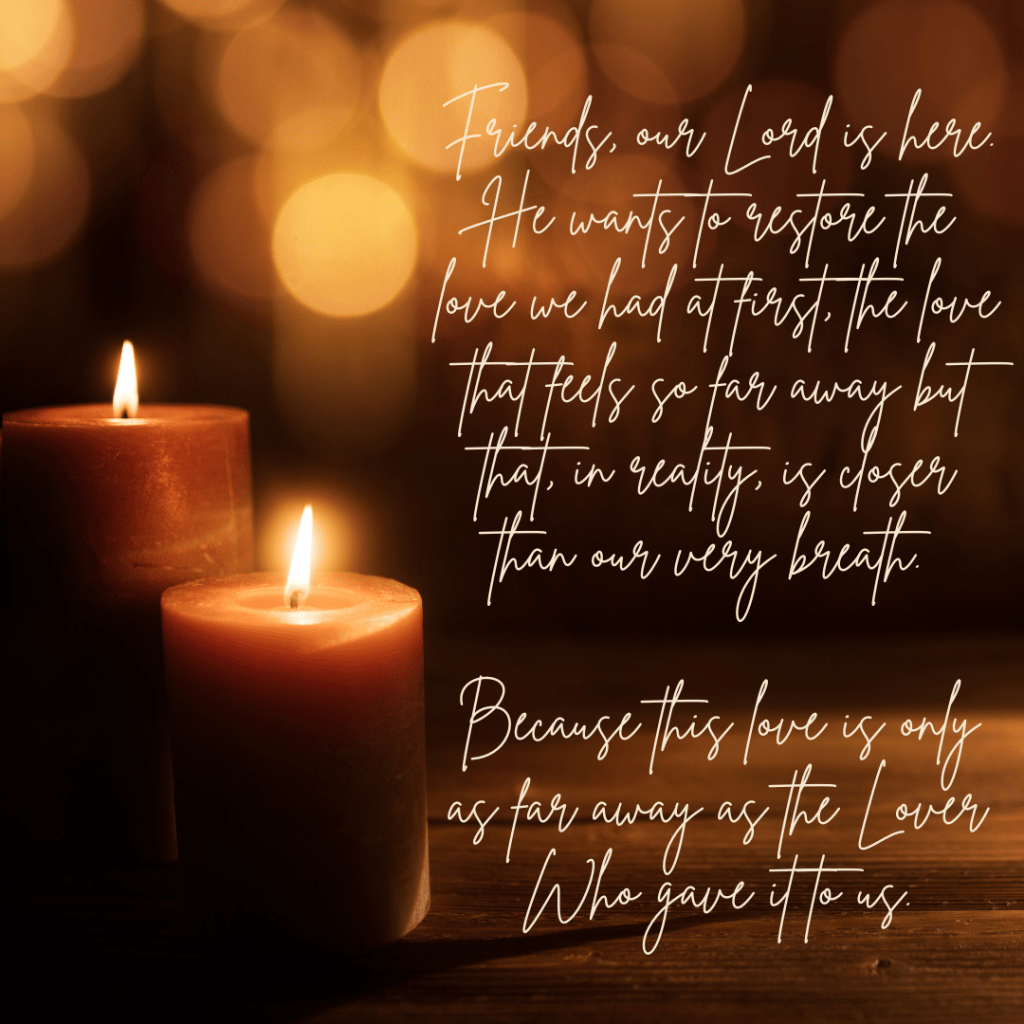 Friends, our Lord is here.
He wants to restore the
love we had at first, the love
that feels so far away but
that, in reality, is closer
than our very breath.
Because this love is only
as far away as the Lover
Who gave it to us.